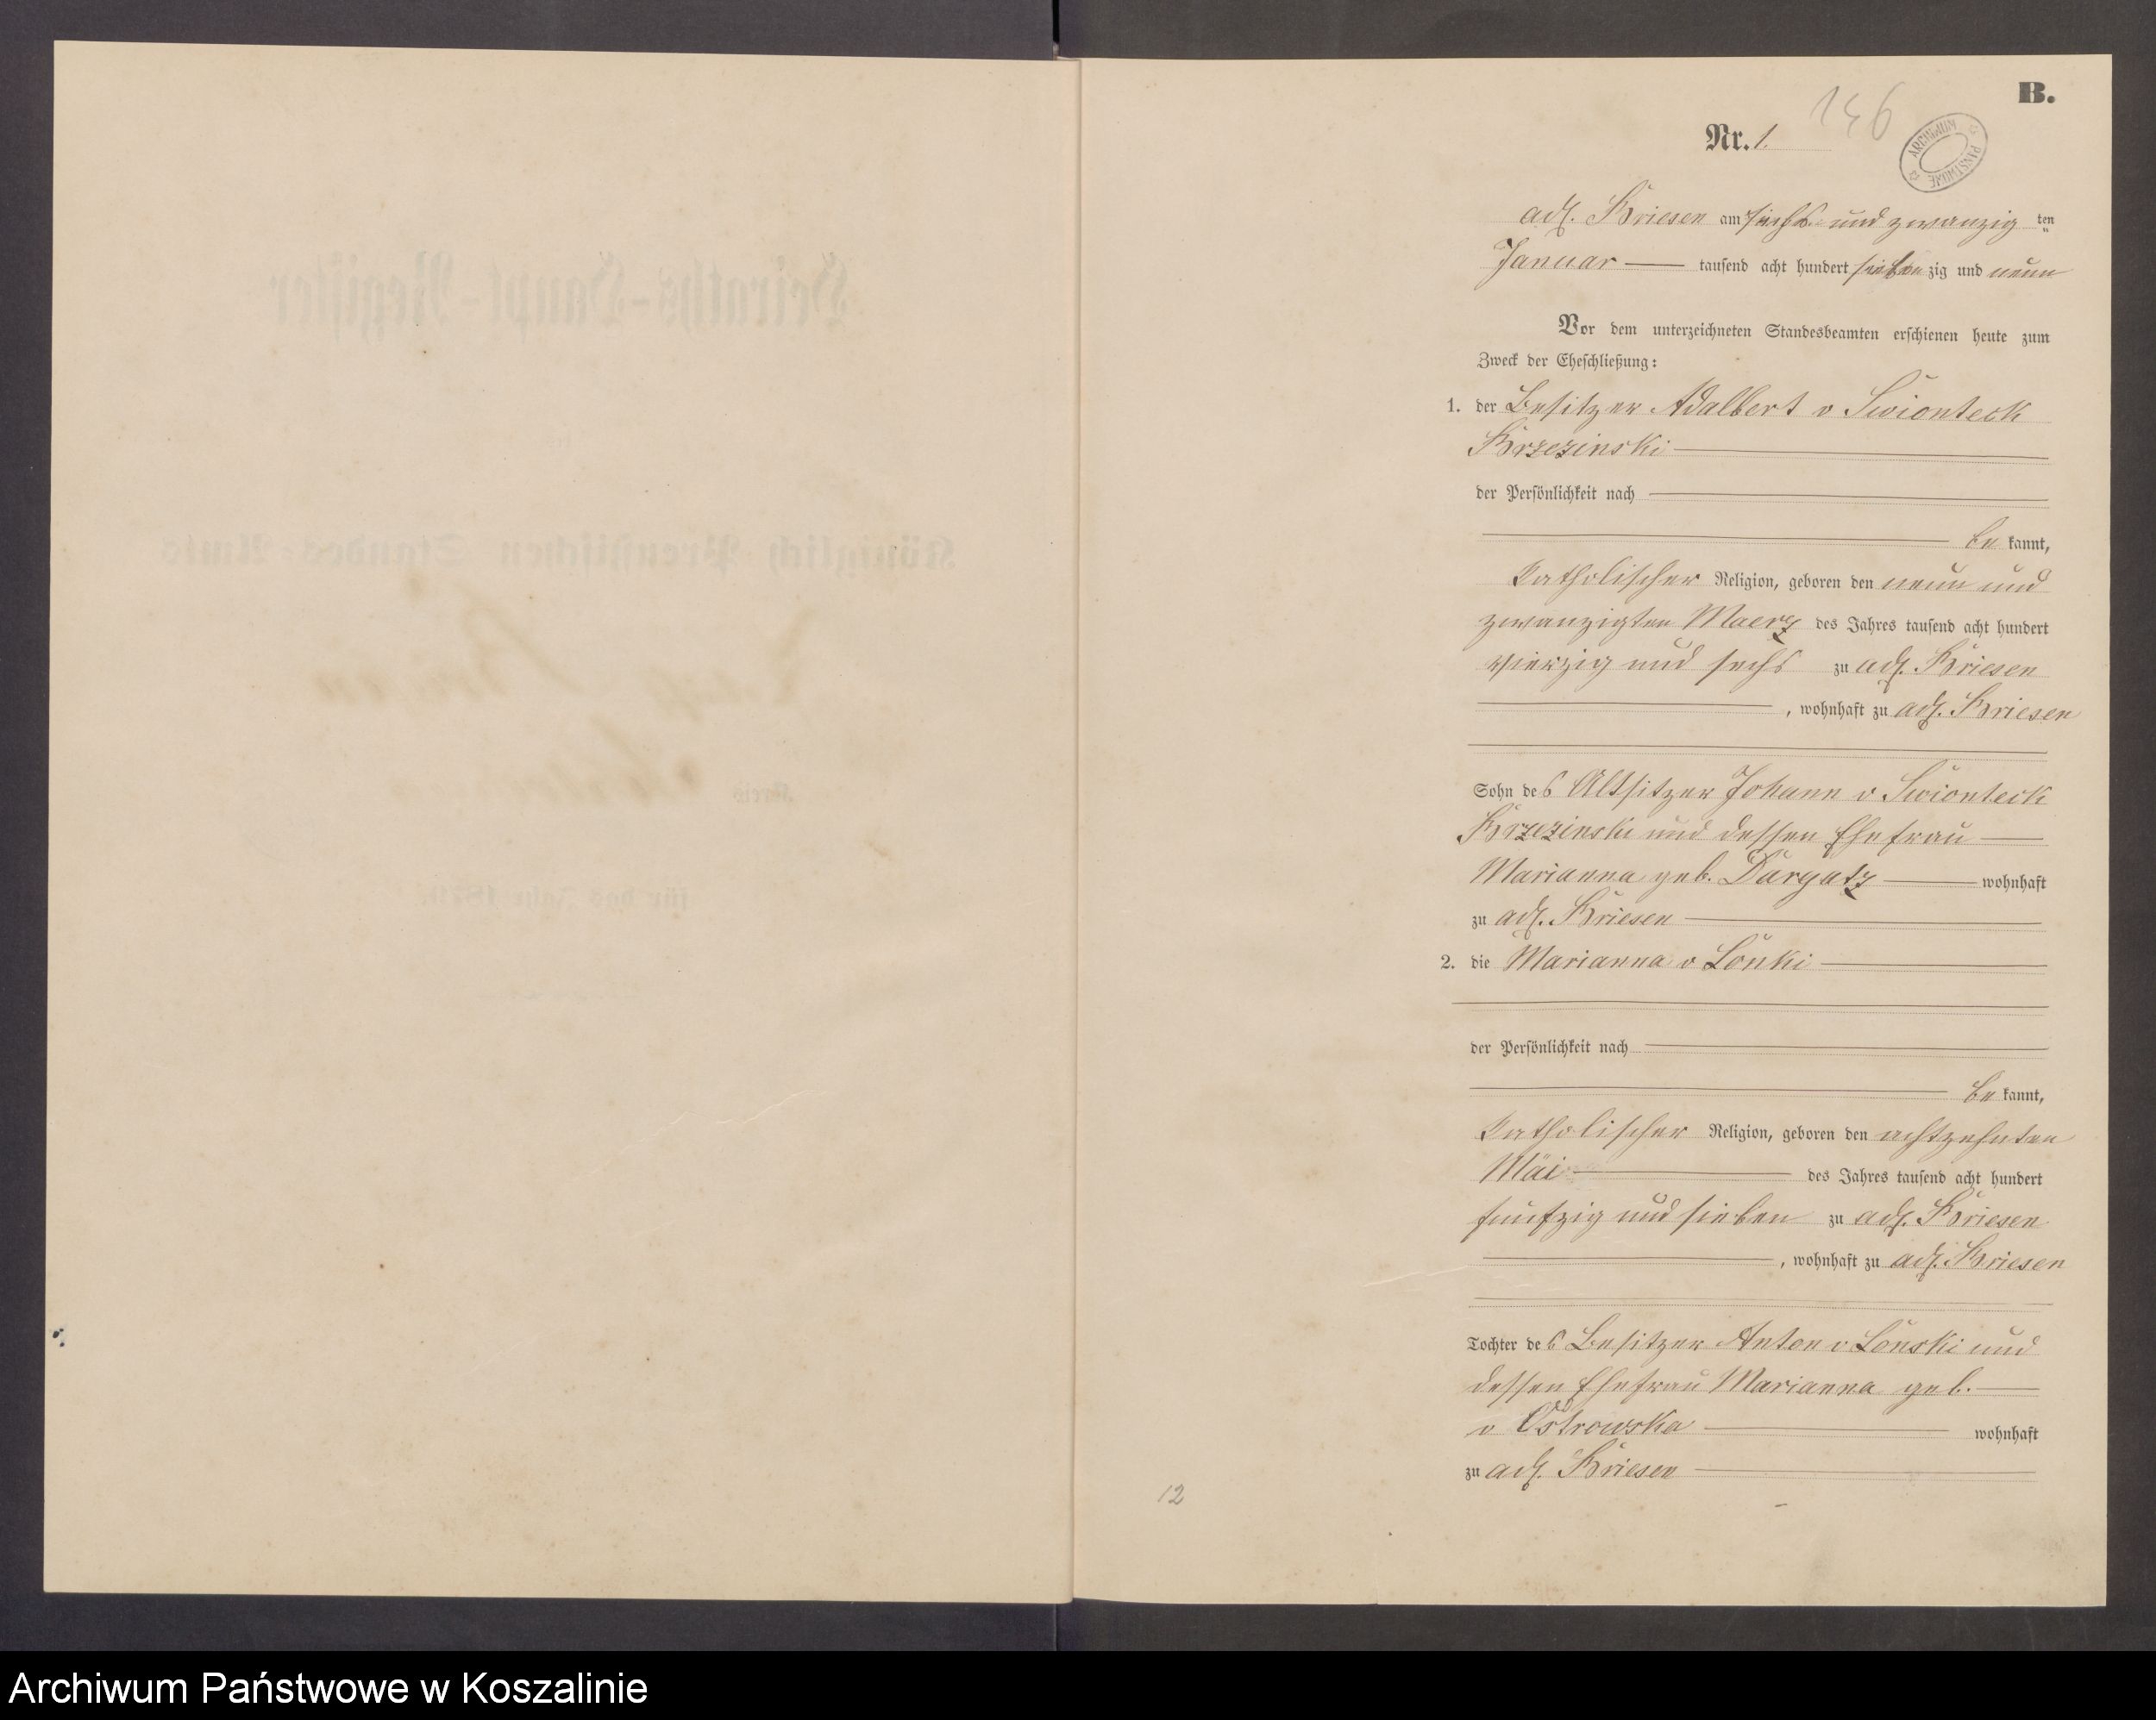 B.
136
Nr. 1.
ARCHIWUM PAŃSTWOWE
adl. Briesen am sechs und zwanzig ten
Januar tausend acht hundert sieben zig und neun
Vor dem unterzeichneten Standesbeamten erschienen heute zum
Zweck der Eheschließung:
1. der Besitzer Adalbert v Swionteck
Brzezinski
der Persönlichkeit nach
be kannt,
katholischer Religion, geboren den neun und
zwanzigten Maerz des Jahres tausend acht hundert
vierzig und sechs zu adl. Briesen
, wohnhaft zu adl. Briesen
Sohn des Altsitzer Johann v Swionteck
Brzezinski und dessen Ehefrau
Marianna geb. Dargatz wohnhaft
zu adl. Briesen
2. die Marianna v Lonki
der Persönlichkeit nach
be kannt,
katholischer Religion, geboren den achtzehnten
Mai des Jahres tausend acht hundert
fünfzig und sieben zu adl. Briesen
, wohnhaft zu adl. Briesen
Tochter des Besitzer Anton v Lonski und
dessen Ehefrau Marianna geb.
v Ostrowska wohnhaft
zu adl. Briesen
12
Archiwum Państwowe w Koszalinie